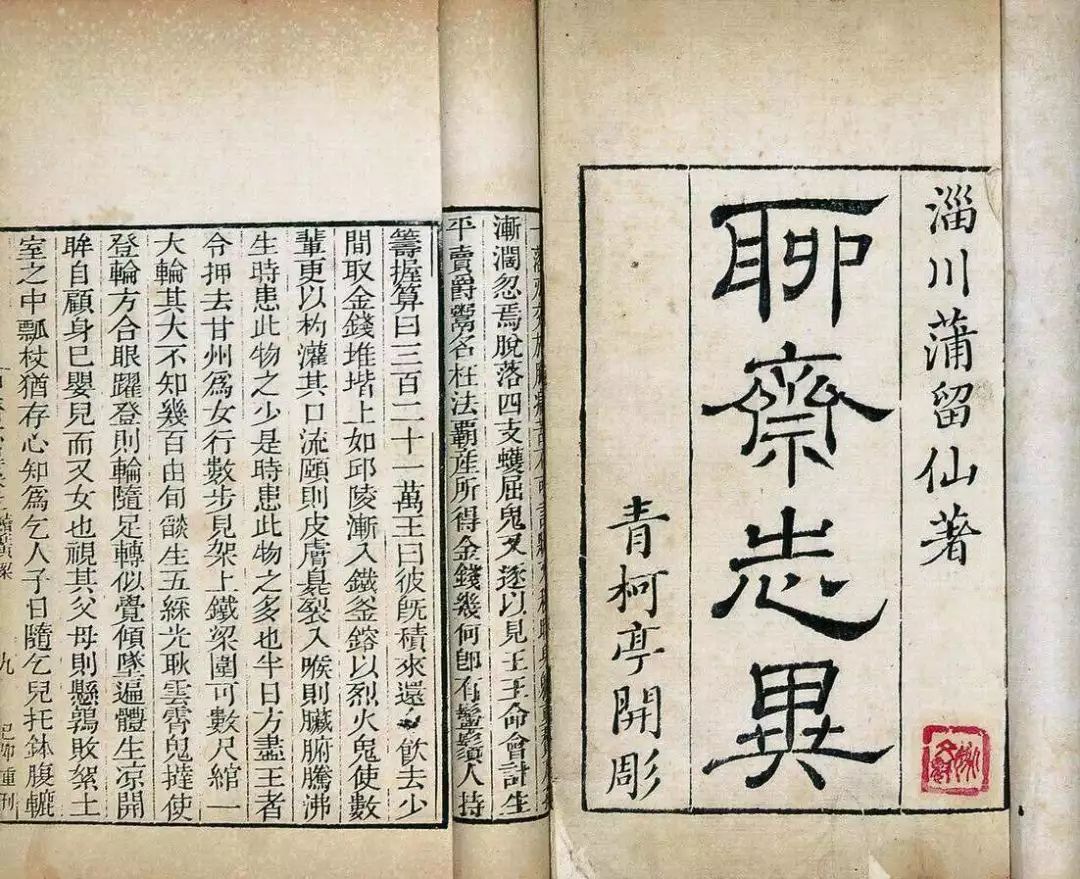 淄川蒲留仙著
聊齋志異
青柯亭開彫
漸濶忽焉脫落四支蠖屈鬼又逐以見王王命會計生
平賣爵鬻名枉法覇産所得金錢幾何卽有鬚人持
籌握算曰三百二十一萬王曰彼旣積來還飮去少
間取金錢堆堦上如邱陵漸入鐵釜鎔以烈火鬼使數
輩更以杓灌其口流頤則皮膚臭裂入喉則臟腑騰沸
生時患此物之少是時患此物之多也半日方盡王者
令押去甘州爲女行數步見架上鐵梁圍可數尺綰一
大輪其大不知幾百由旬燄生五綵光耿雲霄鬼撻使
登輪方合眼躍登則輪隨足轉似覺傾墜遍體生凉開
眸自顧身已嬰兒而又女也視其父母則懸鶉敗絮土
室之中瓢杖猶存心知爲乞人子日隨乞兒托鉢腹轆
九